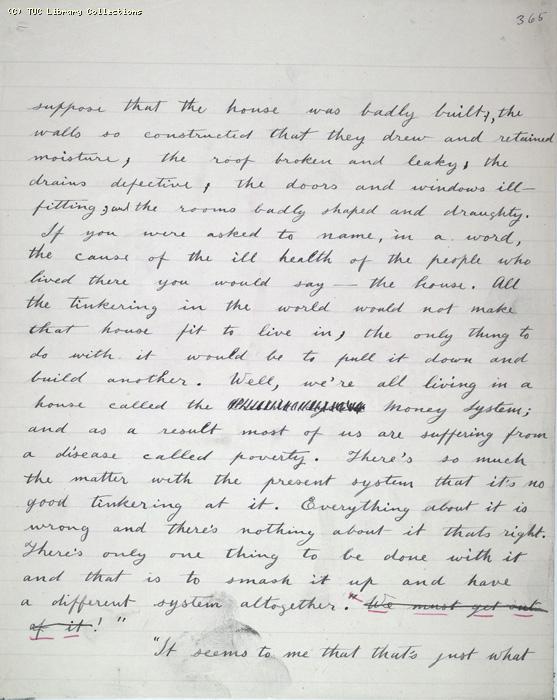 (C) TUC Library Collections
365
suppose that the house was badly built, the
walls so constructed that they drew and retained
moisture, the roof broken and leaky, the
drains defective, the doors and windows ill-
fitting, and the rooms badly shaped and draughty.
If you were asked to name, in a word,
the cause of the ill health of the people who
lived there you would say — the house. All
the tinkering in the world would not make
that house fit to live in, the only thing to
do with it would be to pull it down and
build another. Well, we're all living in a
house called the Money System;
and as a result most of us are suffering from
a disease called poverty. There's so much
the matter with the present system that it's no
good tinkering at it. Everything about it is
wrong and there's nothing about it thats right.
There's only one thing to be done with it
and that is to smash it up and have
a different system altogether." We must get out
of it! "
"It seems to me that that's just what